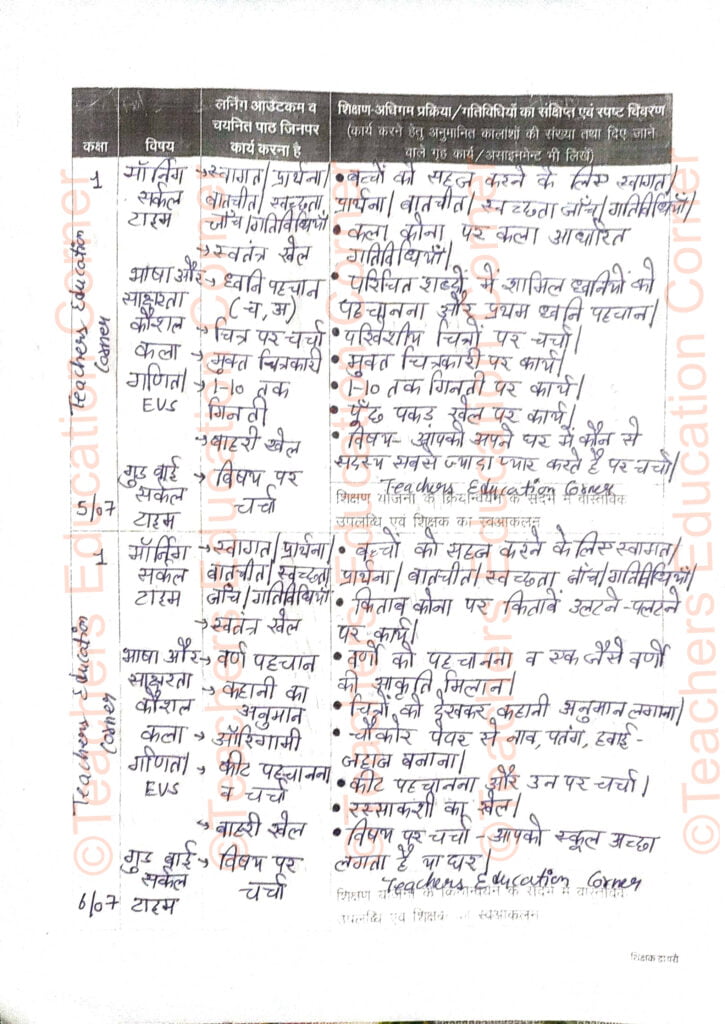 कक्षा
विषय
लर्निंग आउटकम व
चयनित पाठ जिनपर
कार्य करना है
शिक्षण-अधिगम प्रक्रिया/गतिविधियों का संक्षिप्त एवं स्पष्ट विवरण
(कार्य करने हेतु अनुमानित कालांशों की संख्या तथा दिए जाने
वाले गृह कार्य/असाइनमेंट भी लिखें)
1
Teachers Education
Corner
5/07
मॉर्निंग
सर्कल
टाइम
भाषा और
साक्षरता
कौशल
कला
गणित/
EVS
गुड बाई
सर्कल
टाइम
→ स्वागत/प्रार्थना/
बातचीत/स्वच्छता
जाँच/गतिविधियाँ
→ स्वतंत्र खेल
→ ध्वनि पहचान
(च, अ)
→ चित्र पर चर्चा
→ मुक्त चित्रकारी
→ 1-10 तक
गिनती
→ बाहरी खेल
→ विषय पर
चर्चा
• बच्चों को सहज करने के लिए स्वागत/
प्रार्थना/बातचीत/स्वच्छता जाँच/गतिविधियाँ/
• कला कोना पर कला आधारित
गतिविधियाँ|
• परिचित शब्दों में शामिल ध्वनियों को
पहचानना और प्रथम ध्वनि पहचान|
• परिवेशीय चित्रों पर चर्चा|
• मुक्त चित्रकारी पर कार्य|
• 1-10 तक गिनती पर कार्य|
• पूँछ पकड़ खेल पर कार्य|
• विषय- आपको अपने घर में कौन से
सदस्य सबसे ज्यादा प्यार करते है पर चर्चा|
Teachers Education Corner
शिक्षण योजना के क्रियान्वयन के संदर्भ में वास्तविक
उपलब्धि एवं शिक्षक का स्वआकलन
1
Teachers Education
Corner
6/07
मॉर्निंग
सर्कल
टाइम
भाषा और
साक्षरता
कौशल
कला
गणित/
EVS
गुड बाई
सर्कल
टाइम
→ स्वागत/प्रार्थना/
बातचीत/स्वच्छता
जाँच/गतिविधियाँ
→ स्वतंत्र खेल
→ वर्ण पहचान
→ कहानी का
अनुमान
→ ऑरिगामी
→ कीट पहचानना
व चर्चा
→ बाहरी खेल
→ विषय पर
चर्चा
• बच्चों को सहज करने के लिए स्वागत/
प्रार्थना/बातचीत/स्वच्छता जाँच/गतिविधियाँ/
• किताब कोना पर किताबें उलटने-पलटने
पर कार्य|
• वर्णों को पहचानना व एक जैसे वर्णों
की आकृति मिलान|
• चित्रों को देखकर कहानी अनुमान लगाना|
• चौकोर पेपर से नाव, पतंग, हवाई-
जहाज बनाना|
• कीट पहचानना और उन पर चर्चा|
• रस्साकशी का खेल|
• विषय पर चर्चा - आपको स्कूल अच्छा
लगता है या घर|
Teachers Education Corner
शिक्षण योजना के क्रियान्वयन के संदर्भ में वास्तविक
उपलब्धि एवं शिक्षक का स्वआकलन
शिक्षक डायरी
©Teachers Education Corner
©Teachers Education Corner
©Teachers Education Corner